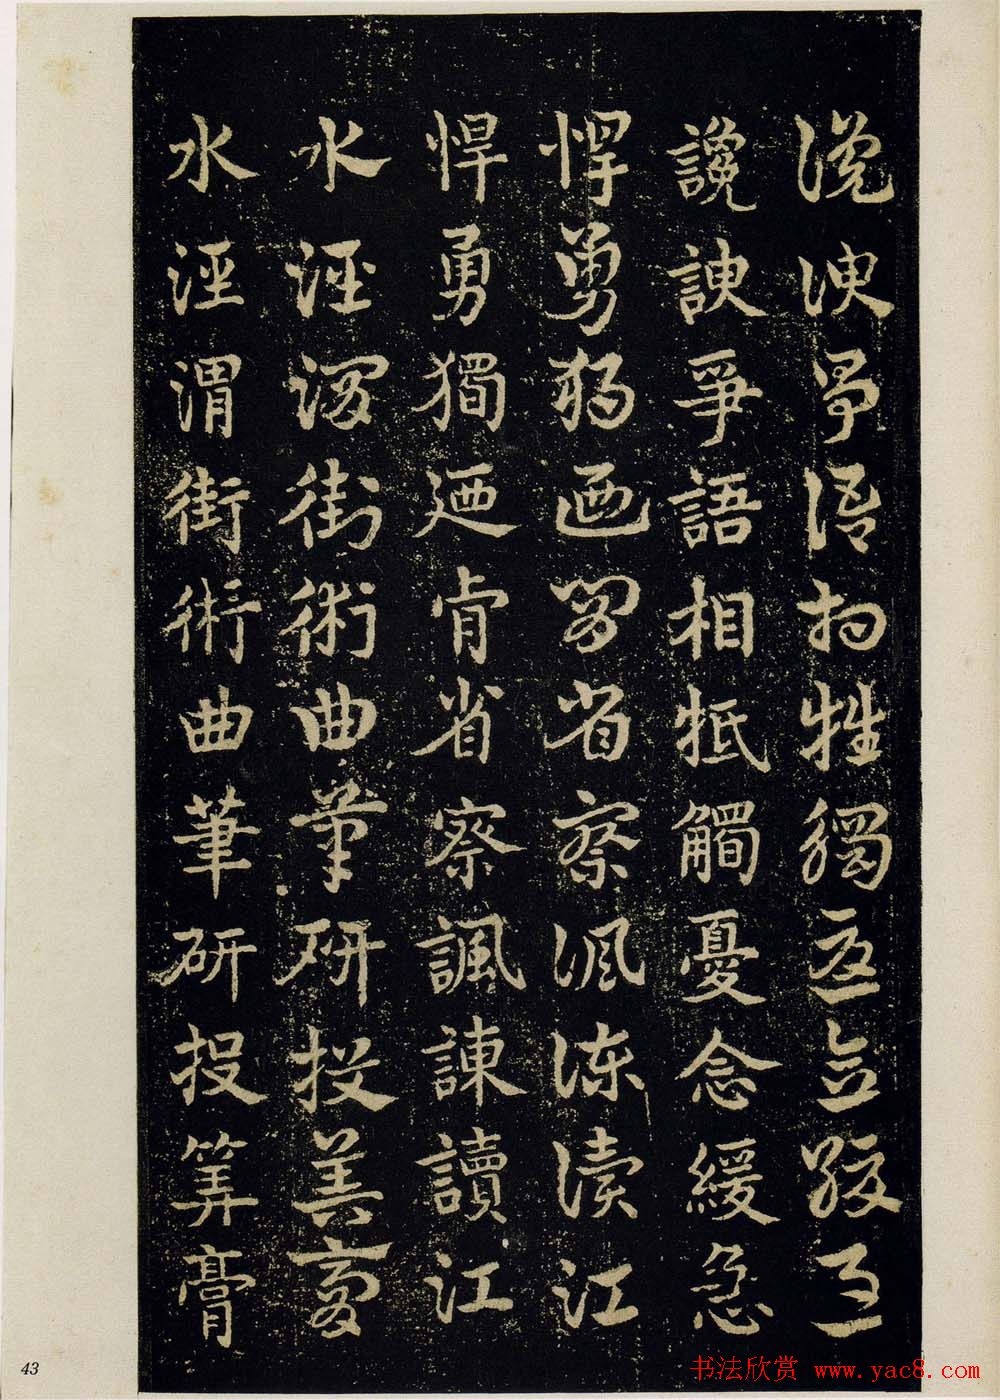 讒諛爭語相牴觸憂念緩急
讒諛爭語相牴觸憂念緩急
悍勇獨迺肯省察諷諫讀江
悍勇獨迺肯省察諷諫讀江
水涇渭街術曲筆研投筭膏
水涇渭街術曲筆研投筭膏
43
书法欣赏 www.yac8.com